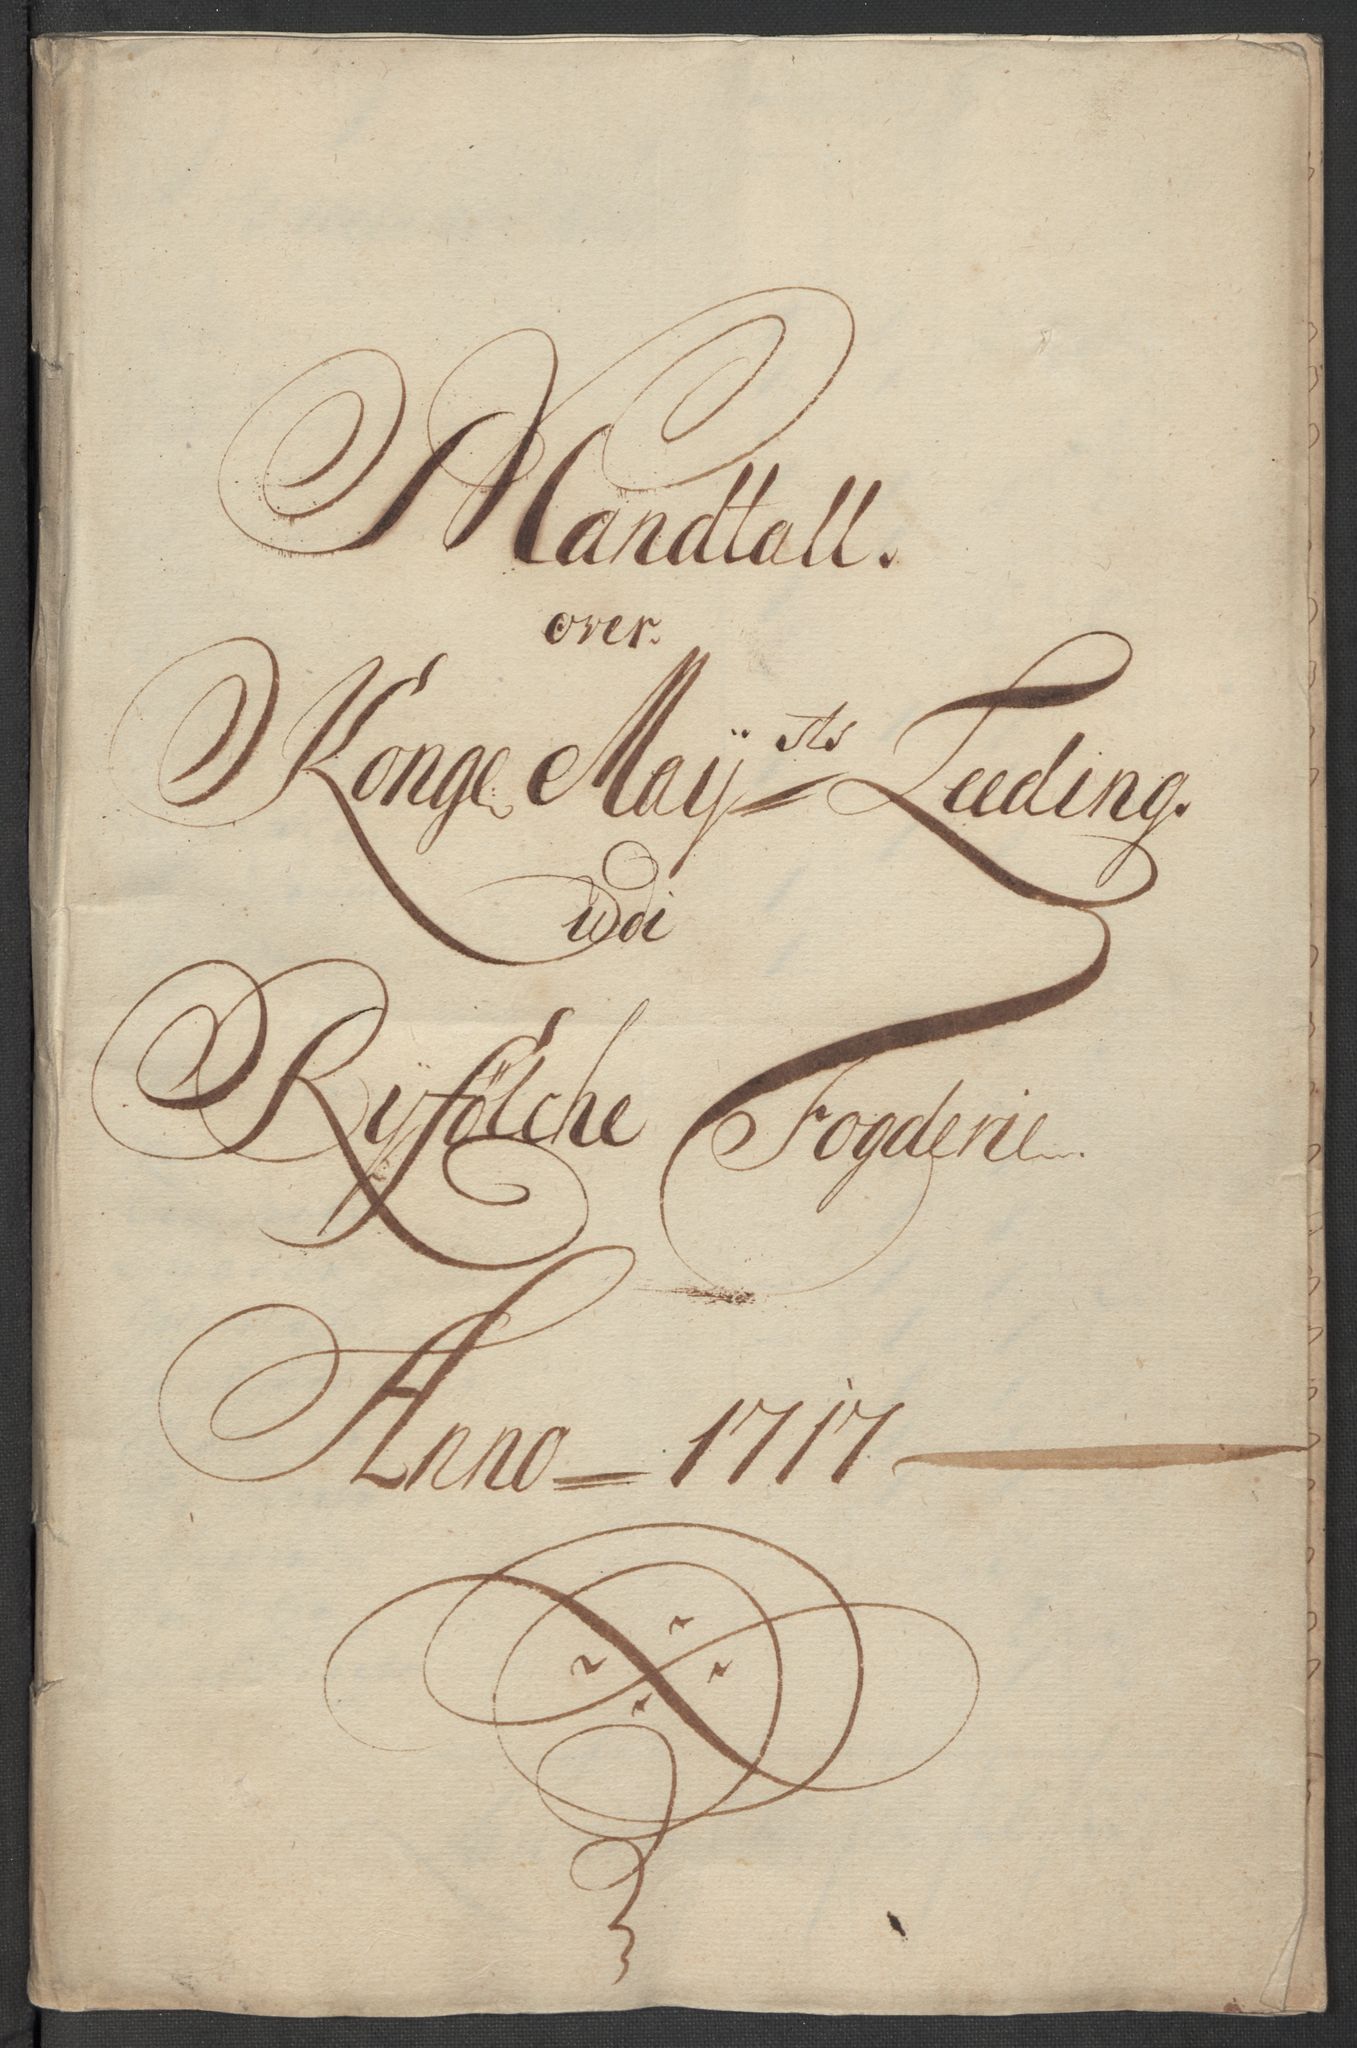 Mandtall.
over.
Konge Maÿsts Leeding.
udi
Ryfölche Fogderie
Anno = 1717